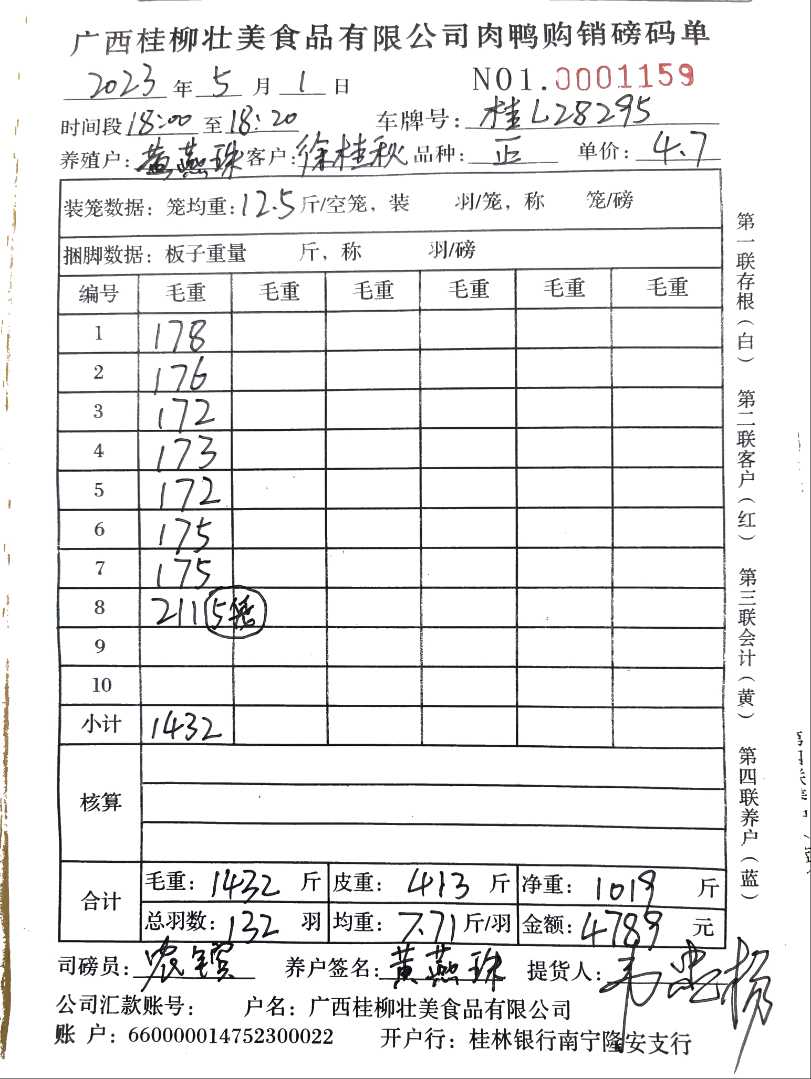 广西桂柳壮美食品有限公司肉鸭购销磅码单
2023 年 5 月 1 日 NO1.0001159
时间段 18:00 至 18:20 车牌号: 桂L28295
养殖户: 黄燕珠 客户: 徐桂秋 品种: 正 单价: 4.7
装笼数据: 笼均重: 12.5 斤/空笼, 装 羽/笼, 称 笼/磅
捆脚数据: 板子重量 斤, 称 羽/磅
编号 毛重 毛重 毛重 毛重 毛重 毛重
1 178
2 176
3 172
4 173
5 172
6 175
7 175
8 211 5
9
10
小计 1432
核算
合计 毛重: 1432 斤 皮重: 413 斤 净重: 1019 斤
总羽数: 132 羽 均重: 7.71 斤/羽 金额: 4789 元
司磅员: 养户签名: 黄燕珠 提货人:
公司汇款账号: 户名: 广西桂柳壮美食品有限公司
账 户: 660000014752300022 开户行: 桂林银行南宁隆安支行
第一联存根(白) 第二联客户(红) 第三联会计(黄) 第四联养户(蓝)